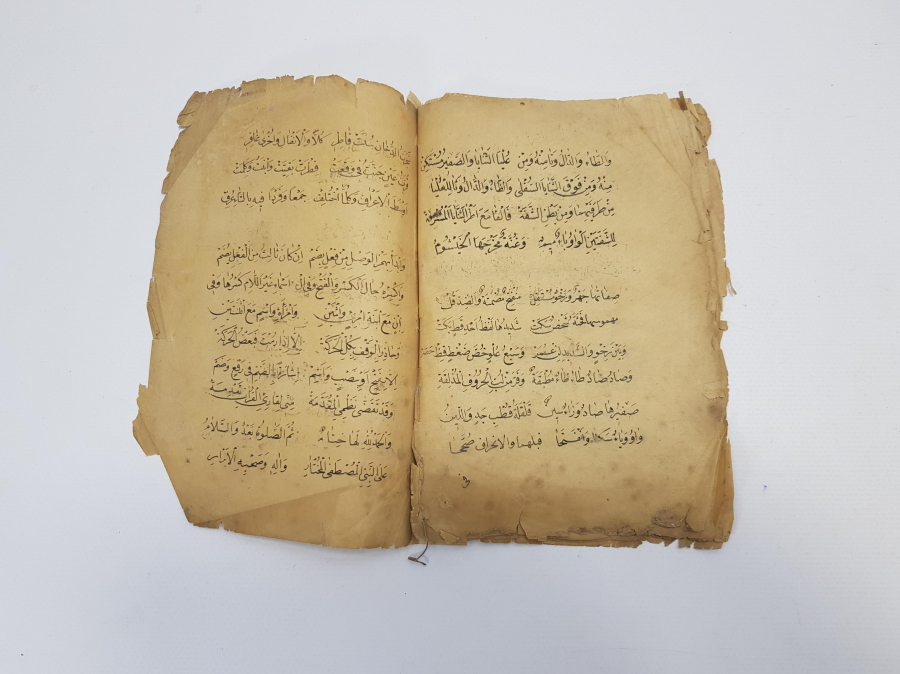 والطاء والدال وتا منه ومن عليا الثنايا والصفير مستكن
منه ومن فوق الثنايا السفلى والظاء والذال وثا للعليا
من طرفيهما ومن بطن الشفة فالفا مع اطراف الثنايا المشرفة
للشفتين الواو باء ميم وغنة مخرجها الخيشوم
صفاتها جهر ورخو مستفل منفتح مصمتة والضد قل
مهموسها فحثه شخص سكت شديدها لفظ اجد قط بكت
وبين رخو والشديد لن عمر وسبع علو خص ضغط قظ
وصاد ضاد طاء ظاء مطبقة وفر من لب الحروف المذلقة
صفيرها صاد وزاء سين قلقلة قطب جد واللين
واو وياء سكنا وانفتحا قبلهما والانحراف صححا
الدخان سنت فاطر كلا والانفال واخرى غافر
عين جنت في وقعت فطرت بقيت وابنت وكلمت
اوسط الاعراف وكل ما اختلف جمعا وفردا فيه بالتاء عرف
وابدأ بهمز الوصل من فعل بضم ان كان ثالث من الفعل يضم
واكسره حال الكسر والفتح وفي الاسماء غير اللام كسرها وفي
ابن مع ابنة امرئ واثنين وامرأة واسم مع اثنتين
وحاذر الوقف بكل الحركة الا اذا رمت فبعض الحركة
الا بفتح او بنصب واشم اشارة بالضم في رفع وضم
وقد تقضى نظمي المقدمة مني لقارئ القرآن تقدمة
والحمد لله لها ختام ثم الصلوة بعد والسلام
على النبي المصطفى المختار واله وصحبه الابرار